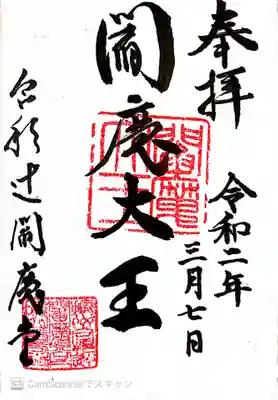 奉拝
令和二年
三月七日
閻魔大王
合祀辻閻魔堂
CS CamScannerでスキャン